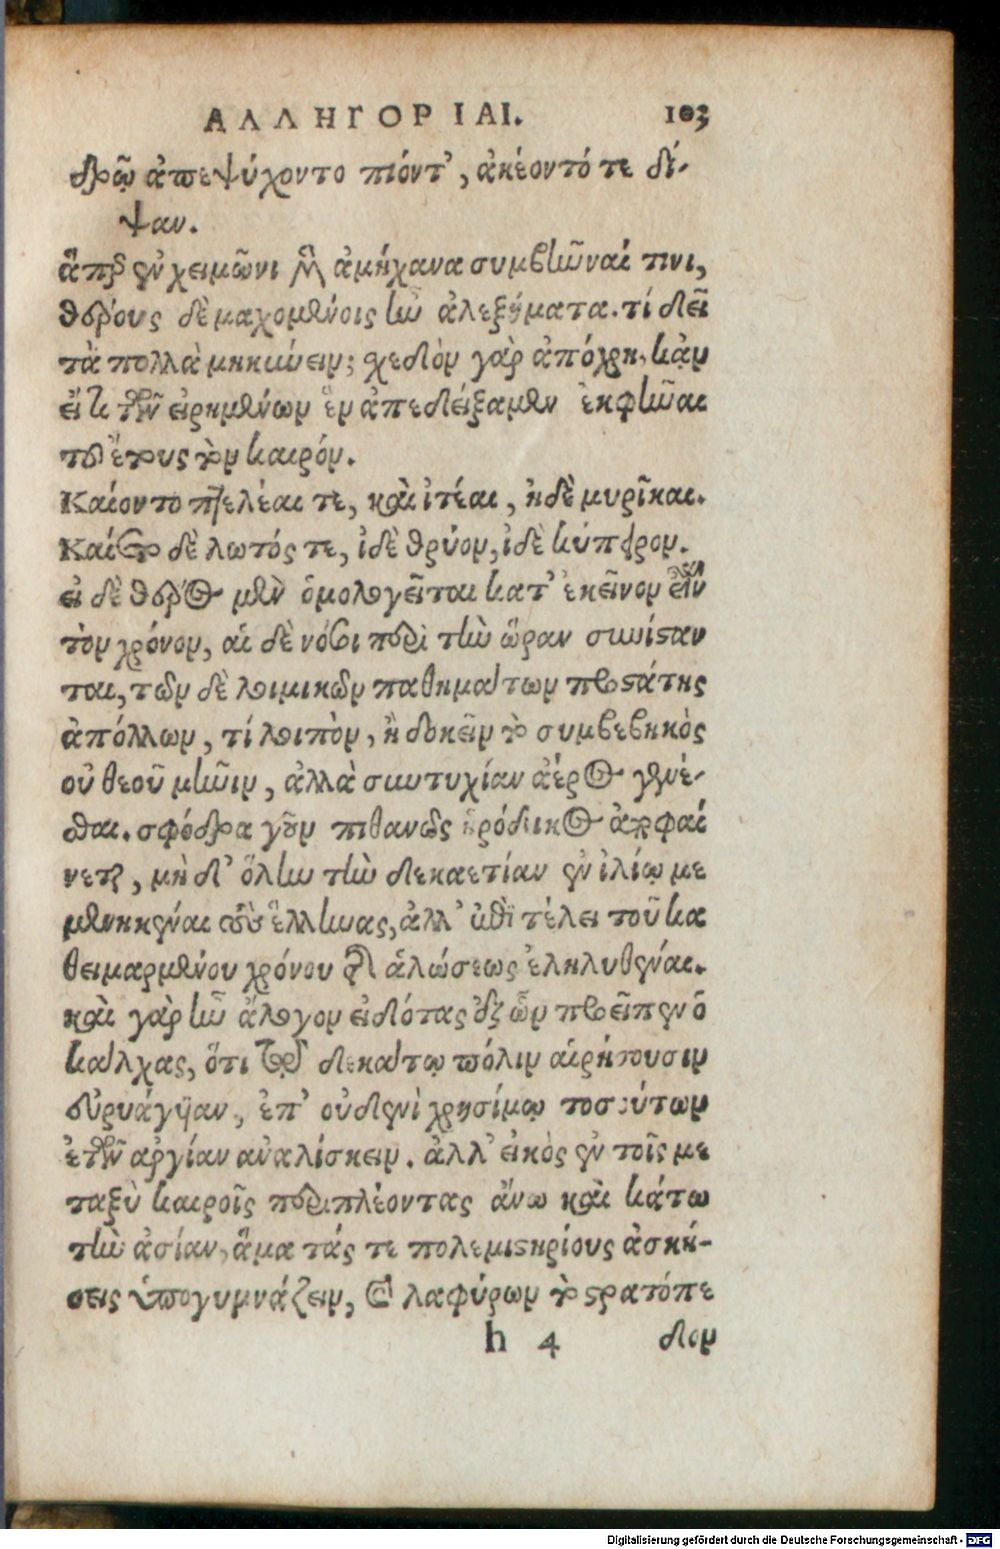 ΑΛΛΗΓΟΡΙΑΙ. 103
δρῶ ἀπεψύχοντο πιόντ', ἀκέοντό τε δί-
ψαν.
ἅπερ ἐν χειμῶνι μὲν ἀμήχανα συμβῶναί τινι,
θέρους δὲ μαχομένοις ἦν ἀλεξήματα. τί δεῖ
τὰ πολλὰ μηκύνειν; σχεδὸν γὰρ ἀπόχρη, κἂν
εἴ τι τῶν εἰρημένων ἓν ἀπεδείξαμεν ἐκφῆναι
τοῦ ἔτους τὸν καιρόν.
Καίοντο πτελέαι τε, καὶ ἰτέαι, ἠδὲ μυρῖκαι.
Καίετο δὲ λωτός τε, ἰδὲ θρύον, ἰδὲ κύπερον.
εἰ δὲ θέρος μὲν ὁμολογεῖται κατ' ἐκεῖνον εἶναι
τὸν χρόνον, αἱ δὲ νόσοι περὶ τὴν ὥραν συνίσταν
ται, τῶν δὲ λοιμικῶν παθημάτων προστάτης
ἀπόλλων, τί λοιπὸν, ἢ δοκεῖν τὸ συμβεβηκὸς
οὐ θεοῦ μῆνιν, ἀλλὰ συντυχίαν ἀέρος γενέ-
σθαι. σφόδρα γοῦν πιθανῶς ἡρόδικος ἀποφαί
νεται, μὴ δι' ὅλην τὴν δεκαετίαν ἐν ἰλίῳ με
μενηκέναι τοὺς ἕλληνας, ἀλλ' ἐπὶ τέλει τοῦ κα
θειμαρμένου χρόνου τῆς ἁλώσεως ἐληλυθέναι.
καὶ γὰρ ἦν ἄλογον εἰδότας ἐξ ὧν προεῖπεν ὁ
κάλχας, ὅτι τῷ δεκάτῳ πόλιν αἱρήσουσιν
εὐρυάγυιαν, ἐπ' οὐδενὶ χρησίμῳ τοσούτων
ἐτῶν ἀργίαν ἀναλίσκειν. ἀλλ' εἰκὸς ἐν τοῖς με
ταξὺ καιροῖς περιπλέοντας ἄνω καὶ κάτω
τὴν ἀσίαν, ἅμα τάς τε πολεμιστηρίους ἀσκή-
σεις ὑπογυμνάζειν, καὶ λαφύρων τὸ στρατόπε
h 4 δον
Digitalisierung gefördert durch die Deutsche Forschungsgemeinschaft - DFG